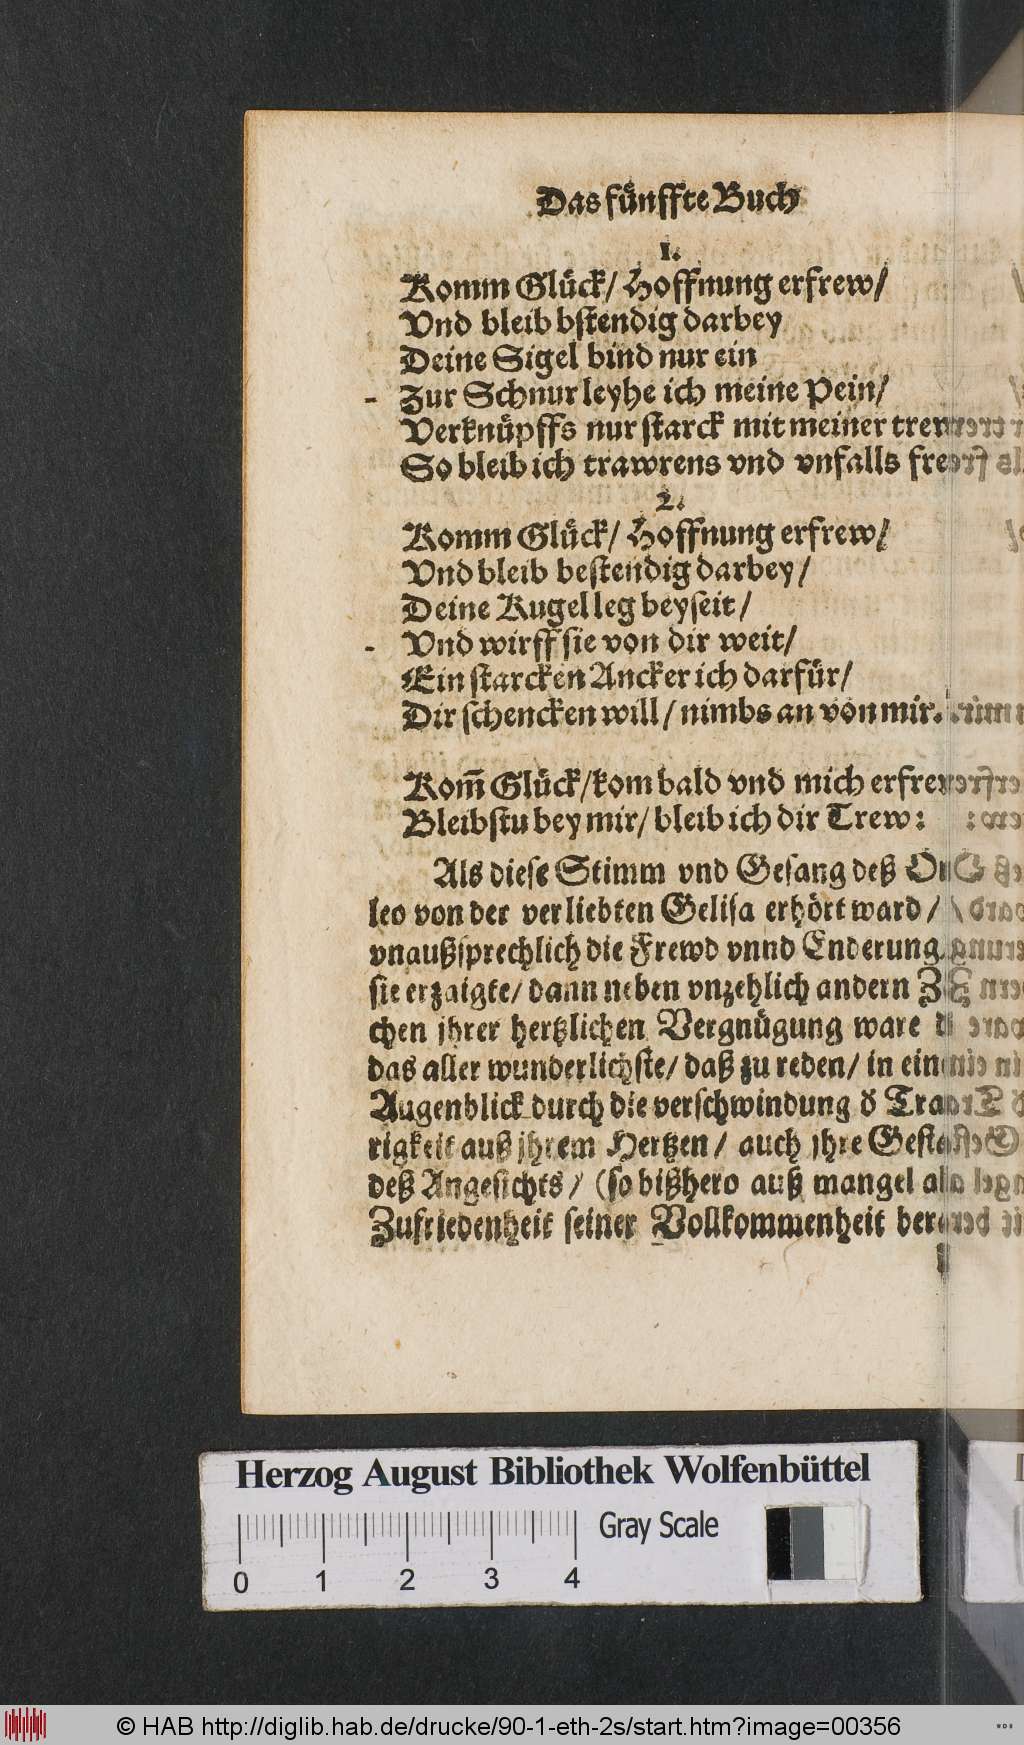 Das fünffte Buch
1.
Komm Glück/ Hoffnung erfrew/
Vnd bleib bstendig darbey
Deine Sigel bind nur ein
Zur Schnur leyhe ich meine Pein/
Verknüpffs nur starck mit meiner trew
So bleib ich trawrens vnd vnfalls frey
2.
Komm Glück/ Hoffnung erfrew/
Vnd bleib bestendig darbey/
Deine Kugel leg beyseit/
Vnd wirff sie von dir weit/
Ein starcken Ancker ich darfür/
Dir schencken will/ nimbs an von mir.
Kom̄ Glück/ kom bald vnd mich erfrew
Bleibstu bey mir/ bleib ich dir Trew:
Als diese Stimm vnd Gesang deß
leo von der verliebten Gelisa erhört ward/
vnaußsprechlich die Frewd vnnd Enderung
sie erzaigte/ dann neben vnzehlich andern
chen jhrer hertzlichen Vergnügung ware
das aller wunderlichste/ daß zu reden/ in einem
Augenblick durch die verschwindung ď Traw
rigkeit auß jhrem Hertzen/ auch jhre Gestalt
deß Angesichts/ (so bißhero auß mangel
Zufriedenheit seiner Vollkommenheit
Herzog August Bibliothek Wolfenbüttel
Gray Scale
0 1 2 3 4
© HAB http://diglib.hab.de/drucke/90-1-eth-2s/start.htm?image=00356